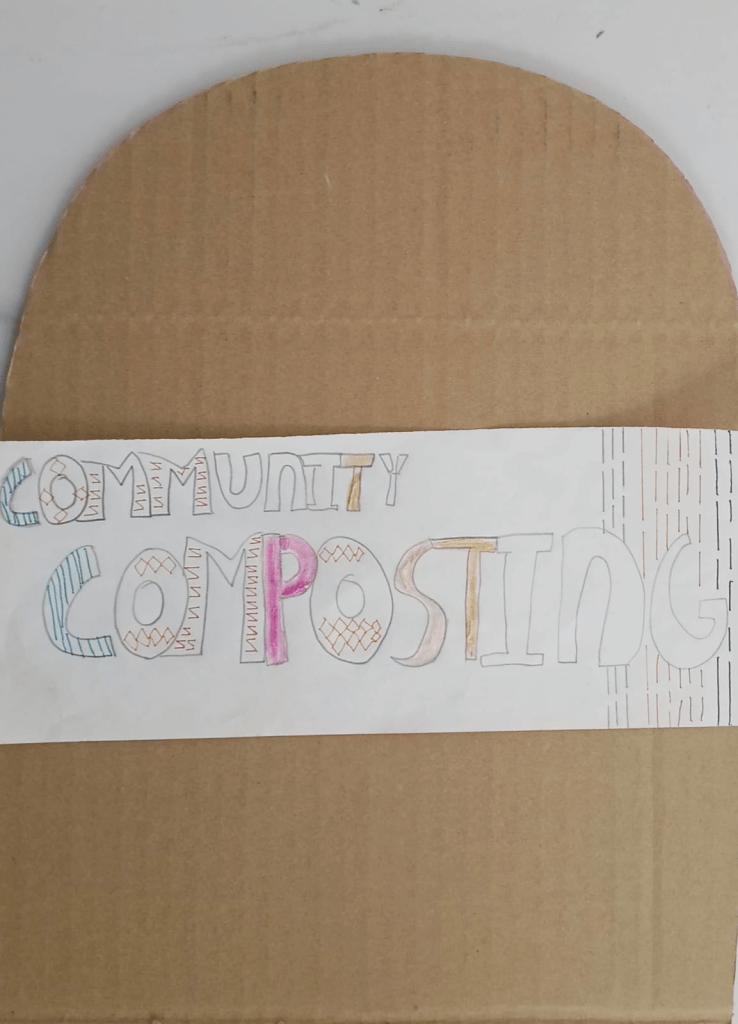 COMMUNITY
COMPOSTING